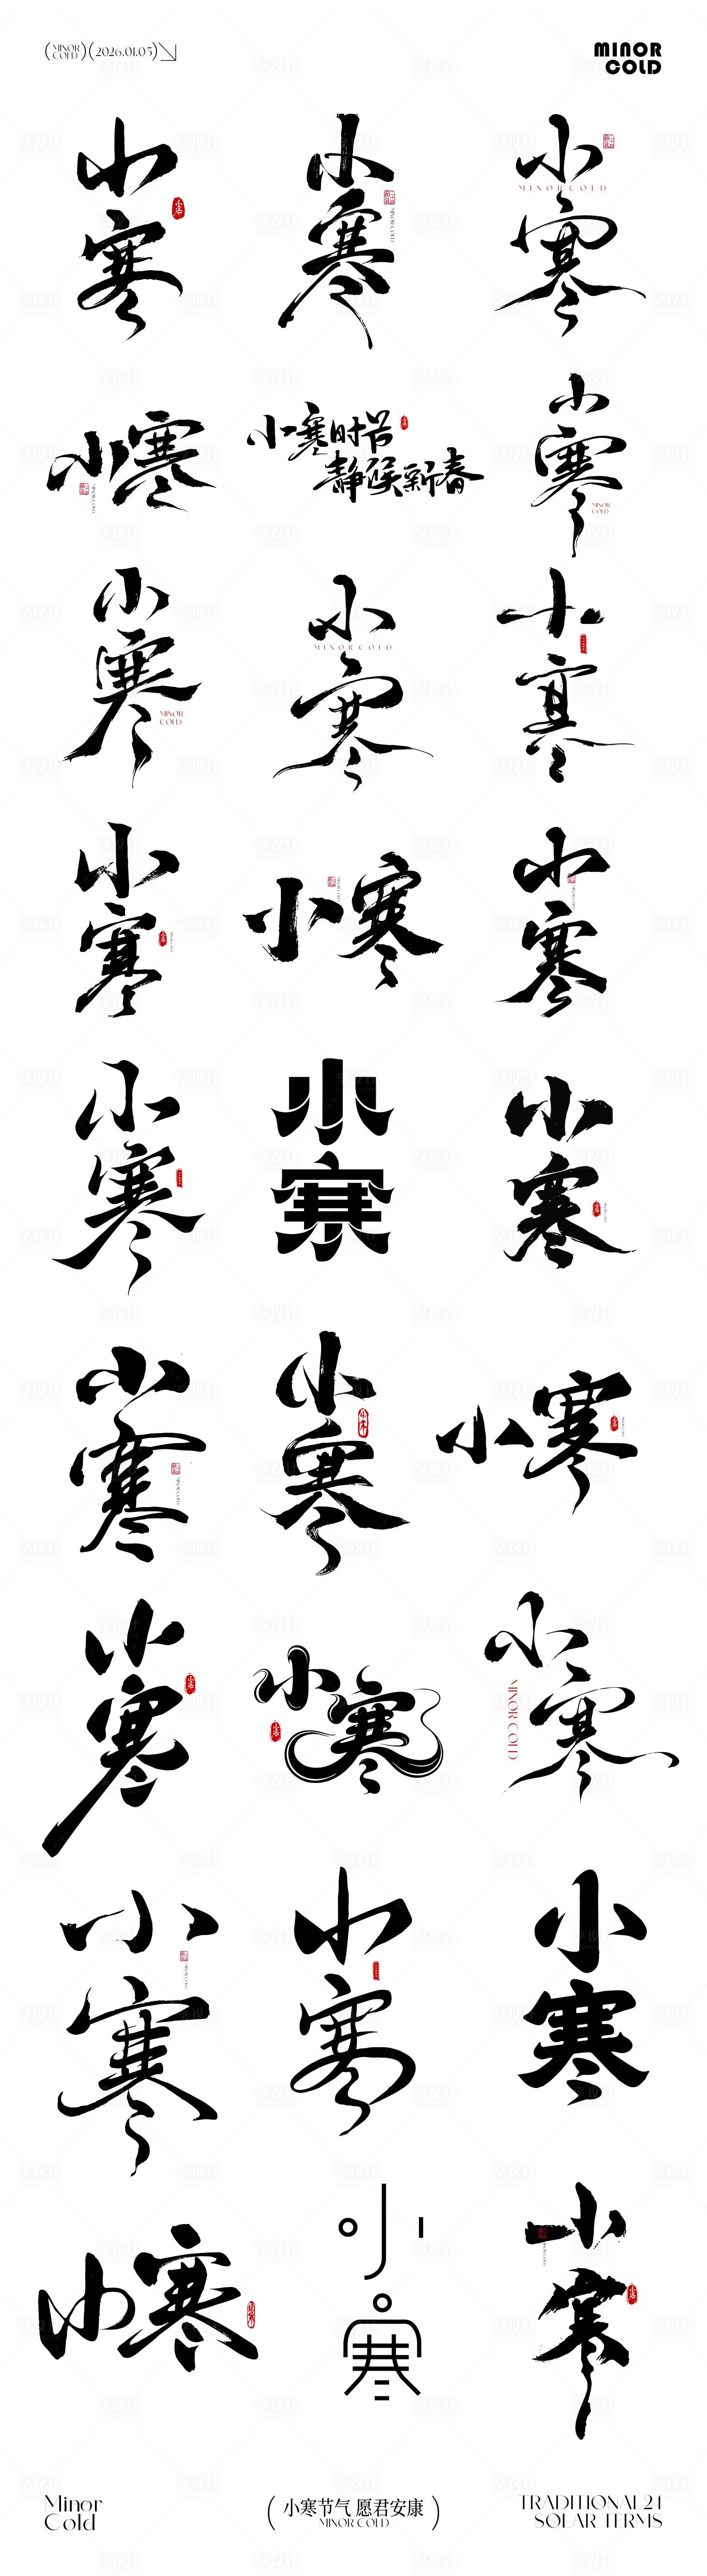 (MINOR COLD)(2026.01.05)
MINOR
COLD
小寒
小寒
MINOR COLD
小寒
MINOR COLD
小寒
MINOR COLD
小寒时节
静候新春
小寒
MINOR
COLD
小寒
MINOR
COLD
小寒
MINOR COLD
小寒
小寒
小寒
MINOR COLD
小寒
小寒
小寒
小寒
小寒
MINOR COLD
小寒
小寒
小寒
小寒
小寒
MINOR COLD
小寒
MINOR COLD
小寒
小寒
小寒
小寒
小寒
Minor
Cold
(小寒节气 愿君安康)
MINOR COLD
TRADITIONAL 24
SOLAR TERMS